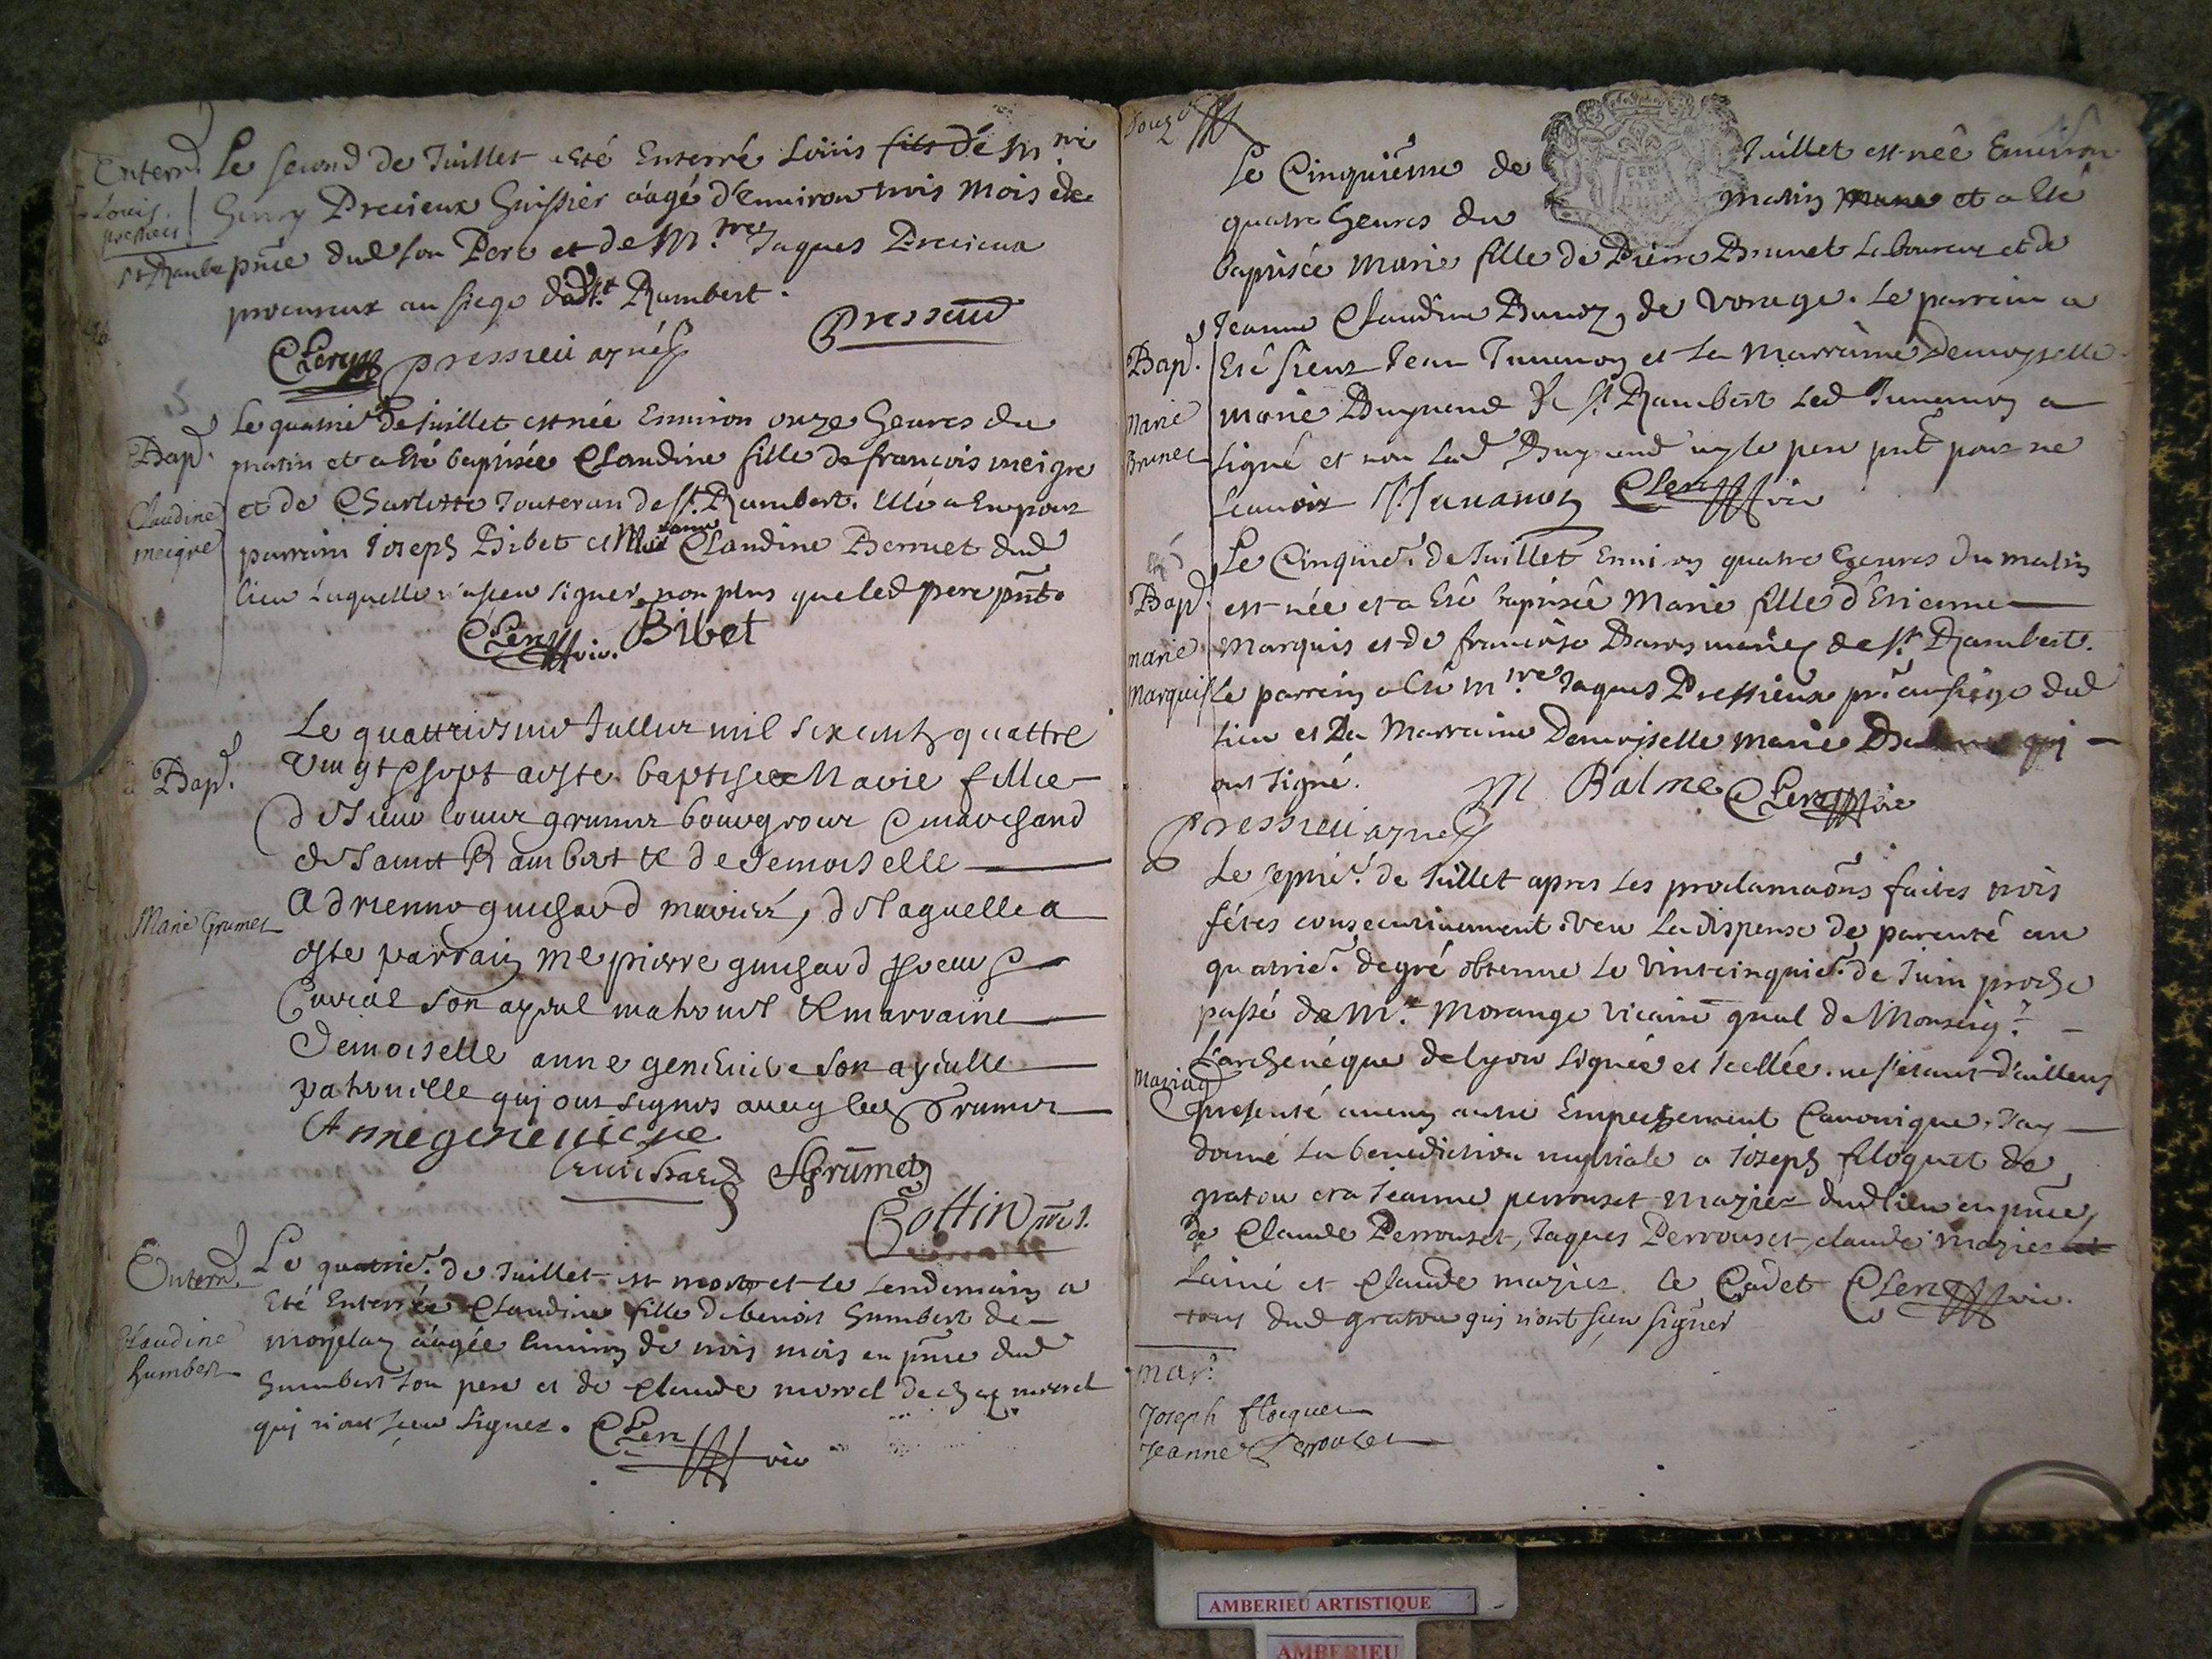 Enterr.
Louis
pressieu
St Rambe
Le second de Juillet a Eté Enterré Loüis fils de Mre
Henry Precieux huissier aâgé d'environ trois Mois en
pnce dud son Pere et de Mre Jaques Precieux
procureur au siege dud St Rambert.
Pressieu
CLerc pressieu ayné
Bap.
Claudine
meigre
Le quatrie de Juillet est née Environ onze heures du
matin et a Eté baptisée Claudine fille de francois meigre
et de Charlotte Jouteran de St Rambert. Elle a Eu pour
parrain Joseph Bibet et Marraine Claudine Bernuet dud
lieu Laquelle n'a sceu signer non plus que led pere pnt.
CLerc vic. Bibet
Bap.
Marie Grumet
Le quattriesme Jullier mil six cents quattre
vingt sept a este baptisee Marie fillie
de Sieur grumet bourgeois Et marchand
de Saint Rambert et de demoiselle
Adrienne guichard mariés, de laquelle a
este parrain Me pierre guichard
Curial son ayeul maternel et marraine
Demoiselle anne genevieve son ayeulle
paternelle qui ont signés avecq led Grumet
Anne genevieve
Guichard Grumet
Cottin
Enterr.
Claudine
humbert
Le quatrie. de Juillet est morte et le Lendemain a
Eté Enterrée Claudine fille de benoit humbert de
morgelas aâgée Environ de trois mois en pnce dud
humbert son pere et de Claude morel de morel
qui n'ont sceu signer. CLerc vic
douze
Le Cinquième de Juillet est née Environ
quatre heures du Matin et a Eté
baptisée Marie fille de Pierre Brunet Laboureur et de
Jeanne Claudine Bunoz de vorage. Le parrain a
Bap.
Marie
Brunet
Eté sieur Jean Juvanon et La Marraine Demoyselle
marie Buynand de St Rambert Led Juvanon a
signé et non Lad Buynand ny le pere pnt pour ne
scauoir J. Juvanon CLerc vic
Bap.
marie
Marquis
Le Cinquie. de Juillet Environ quatre heures du matin
est née et a Eté baptisée Marie fille d'Etienne
Marquis et de francoise mariez de St Rambert.
Le parrein a Eté Mre Jaques Pressieux pr au siège dud
lieu et La Marraine Demoyselle marie qui
ont signé.
M Balme CLerc vic
pressieu ayné
Mariag
Le septie. de Juillet apres Les proclamaõns faites trois
fétes consecutivement. veu La dispense de parenté au
quatrie. degré obtenue Le vintcinquie. de Juin proche
passé de Mr. Morange vicaire gnal de Monseigr.
L'archevéque de lyon signée et scellée. ne s'étant d'ailleurs
presenté aucun autre Empeschement Canonique, J'ay
donné La benediction nuptiale a Joseph floquet de
gratou et a Jeanne perrouset mazier dud lieu en pnce
de Claude Perrouset, Jaques Perrouset, claude mazier et
L'ainé et Claude mazier le Cadet CLerc vic.
tous dud gratou qui n'ont sceu signer
mar.
Joseph flocquet
Jeanne Perrouset
AMBERIEU ARTISTIQUE
AMBERIEU